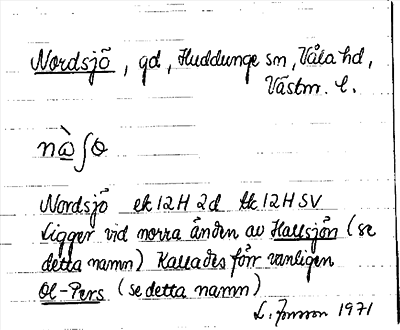 Nordsjö, gd, Huddunge sn, Våla hd,
Västm. l.
nὼʃɵ
Nordsjö ek 12H 2d tk 12H SV
Ligger vid norra änden av Hallsjön (se
detta namn) Kallades förr vanligen
Ol-Pers (se detta namn)
L. Jonsson 1971